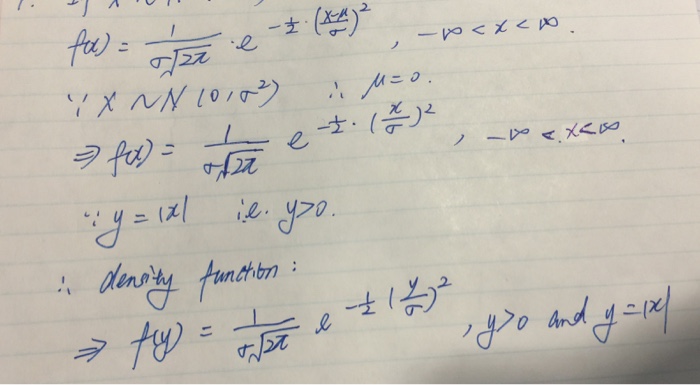 f(x) = 1/(σ√2π) · e^(-1/2 · ((x-μ)/σ)^2) , -∞ < x < ∞.
∵ X ~ N(0, σ²) ∴ μ = 0.
⇒ f(x) = 1/(σ√2π) e^(-1/2 · (x/σ)^2) , -∞ < x < ∞.
∵ y = |x| i.e. y>0.
∴ density function :
⇒ f(y) = 1/(σ√2π) e^(-1/2 (y/σ)^2) , y>0 and y = |x|